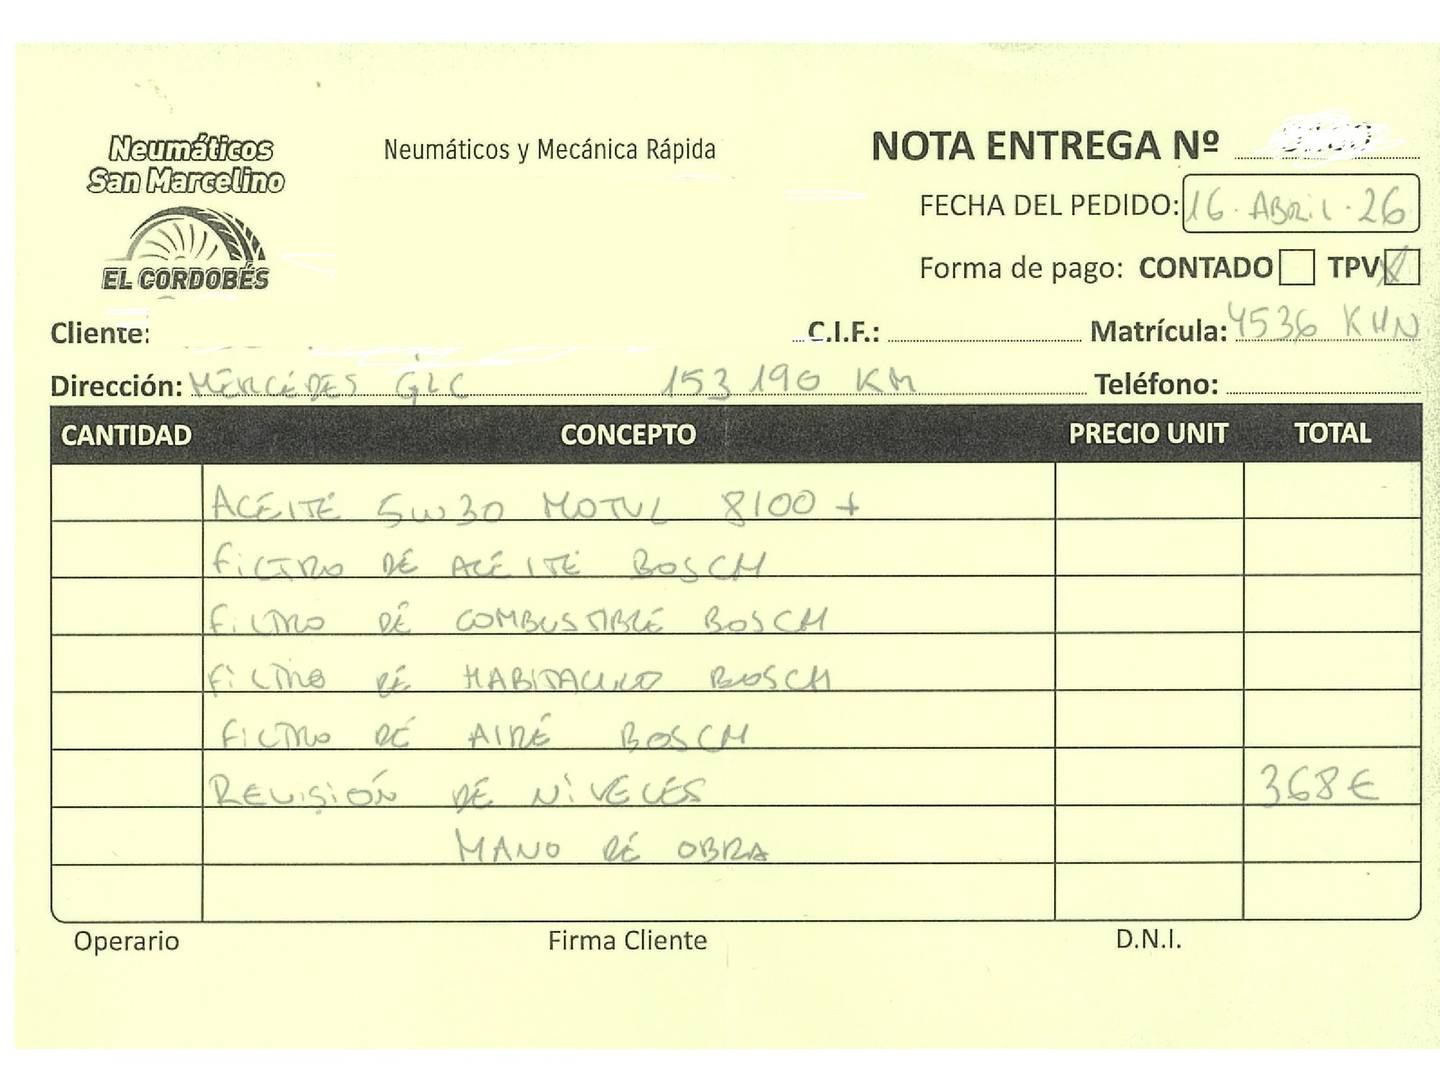 Neumáticos
San Marcelino
EL CORDOBÉS
Neumáticos y Mecánica Rápida
NOTA ENTREGA Nº
FECHA DEL PEDIDO: 16. ABRIL. 26
Forma de pago: CONTADO TPV X
Cliente: C.I.F.: Matrícula: 4536 KHN
Dirección: MERCEDES GLC 153190 KM Teléfono:
CANTIDAD CONCEPTO PRECIO UNIT TOTAL
ACEITE 5W30 MOTUL 8100 +
FILTRO DE ACEITE BOSCH
FILTRO DE COMBUSTIBLE BOSCH
FILTRO DE HABITACULO BOSCH
FILTRO DE AIRE BOSCH
REVISIÓN DE NIVELES 368€
MANO DE OBRA
Operario Firma Cliente D.N.I.